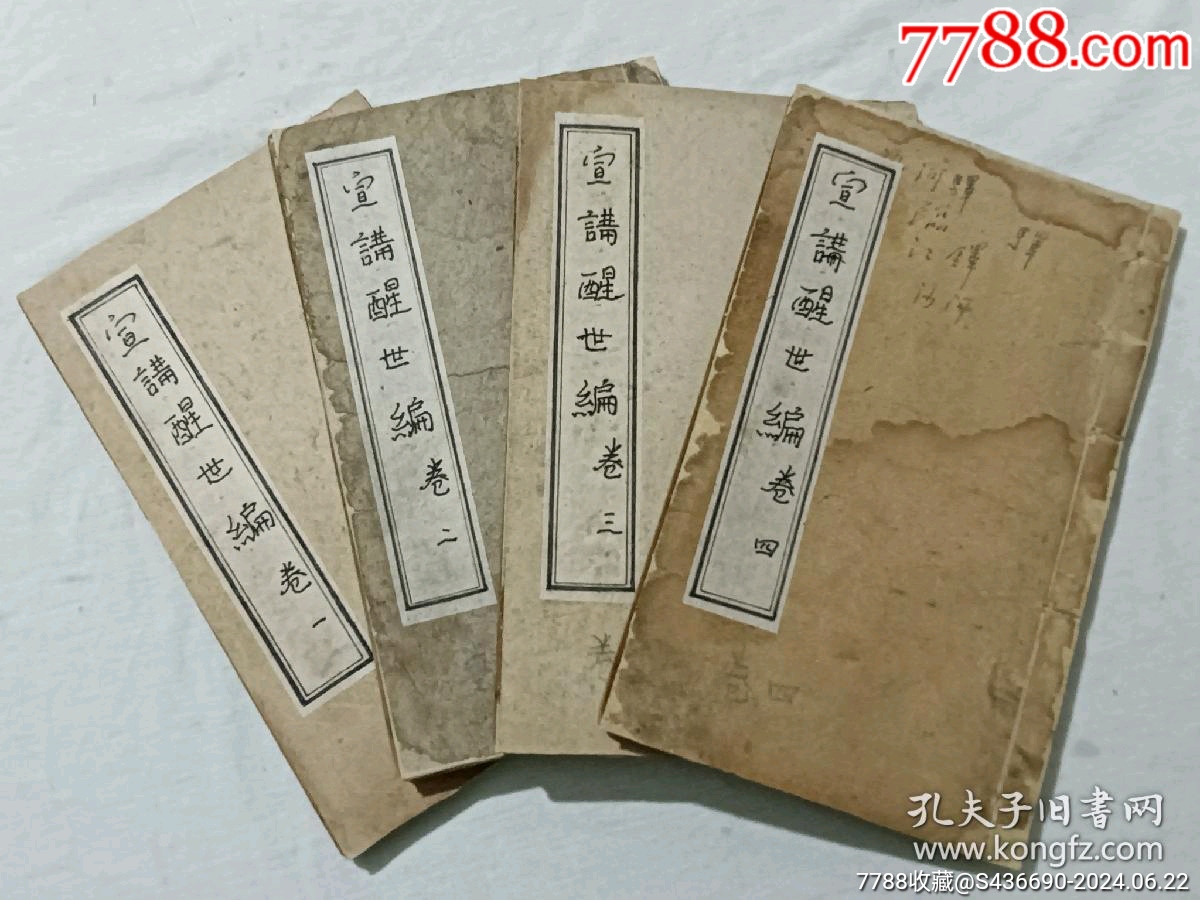 7788.com
宣講醒世編卷一
宣講醒世編卷二
宣講醒世編卷三
宣講醒世編卷四
卷四
孔夫子旧书网
www.kongfz.com
7788收藏@S436690-2024.06.22